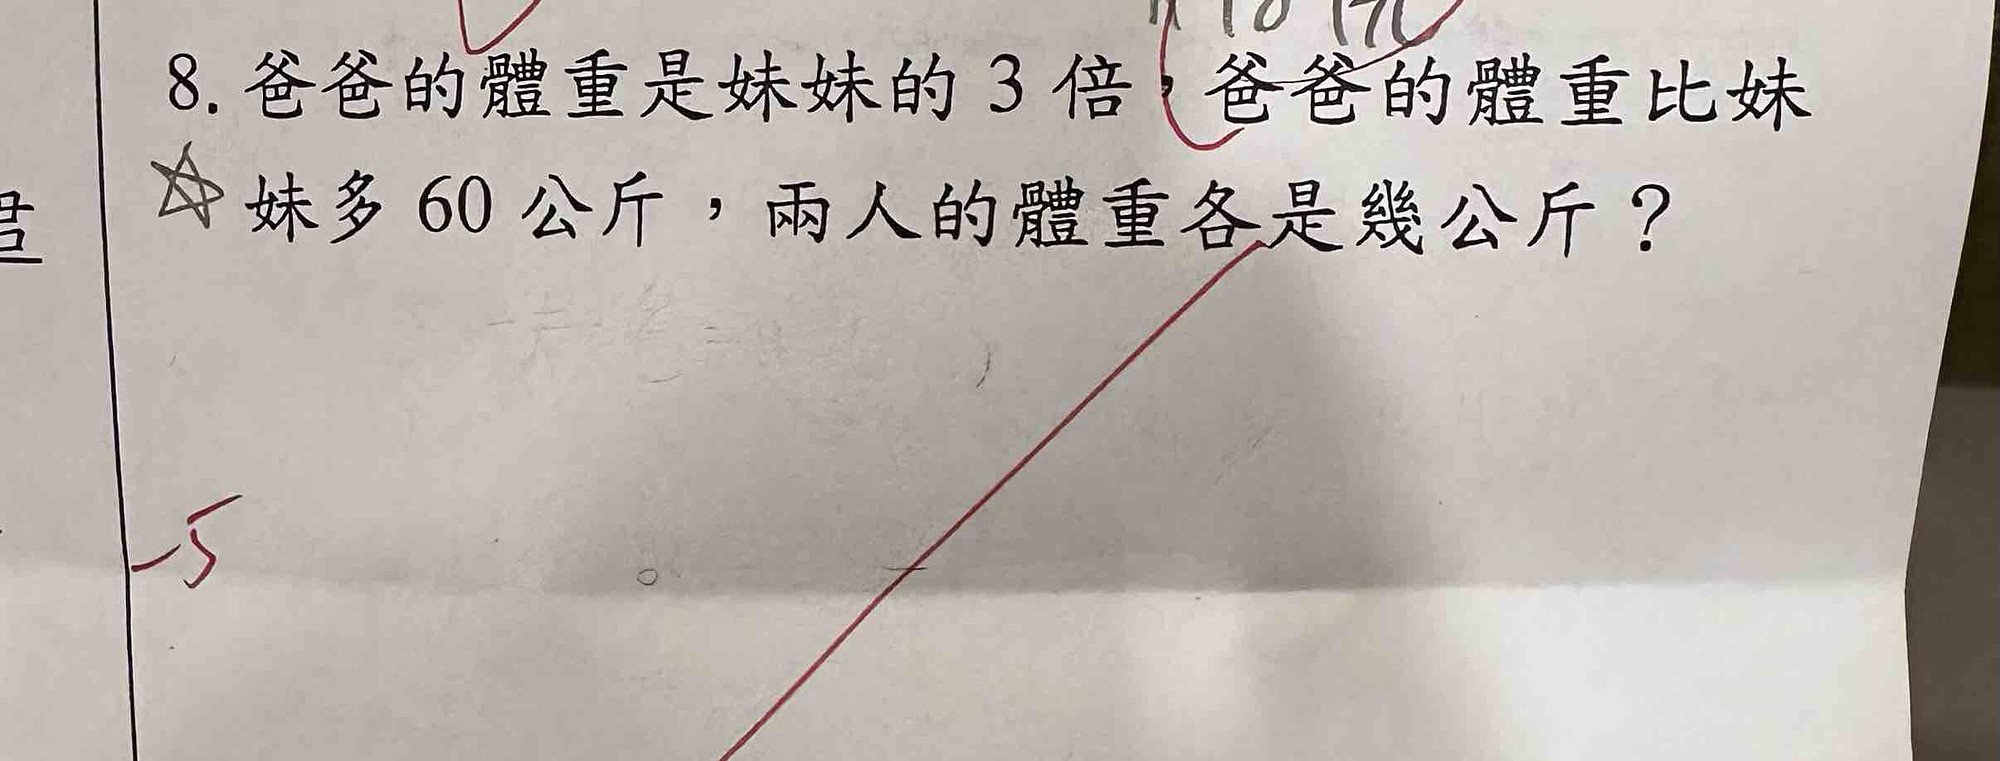 8. 爸爸的體重是妹妹的 3 倍，爸爸的體重比妹
妹多 60 公斤，兩人的體重各是幾公斤？
-5